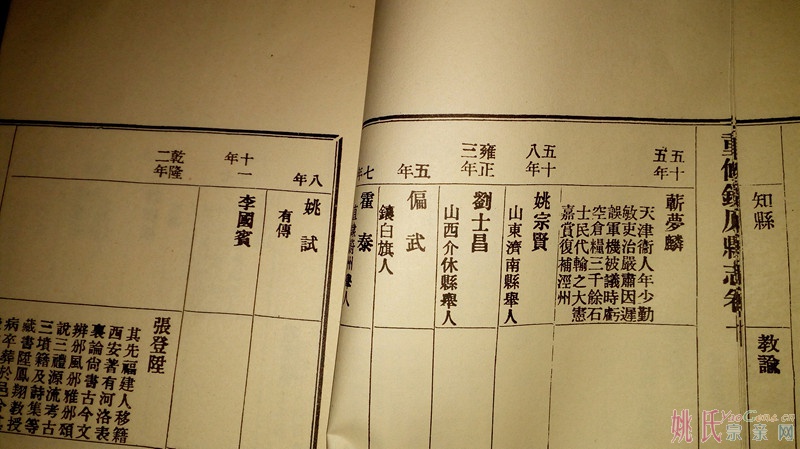 重修鎮原縣志卷十
知縣
教諭
五十五年
靳夢麟
天津衛人年少勤
敏吏治嚴肅因遲
誤軍機被議時虧
空倉糧三千餘石
士民代輸之大憲
嘉賞復補涇州
五十八年
姚宗賢
山東濟南縣舉人
雍正三年
劉士昌
山西介休縣舉人
五年
偏武
鑲白旗人
七年
霍泰
州人
八年
姚試
有傳
十一年
李國賓
乾隆二年
張登陞
其先福建人移籍
西安著有河洛表
裏論尚書古今文
辨邠風邠雅邠頌
說三禮源流考古
三墳籍及詩集等
藏書陞鳳翔教授
病卒葬於邑
姚氏宗亲网
YaoGens.cn